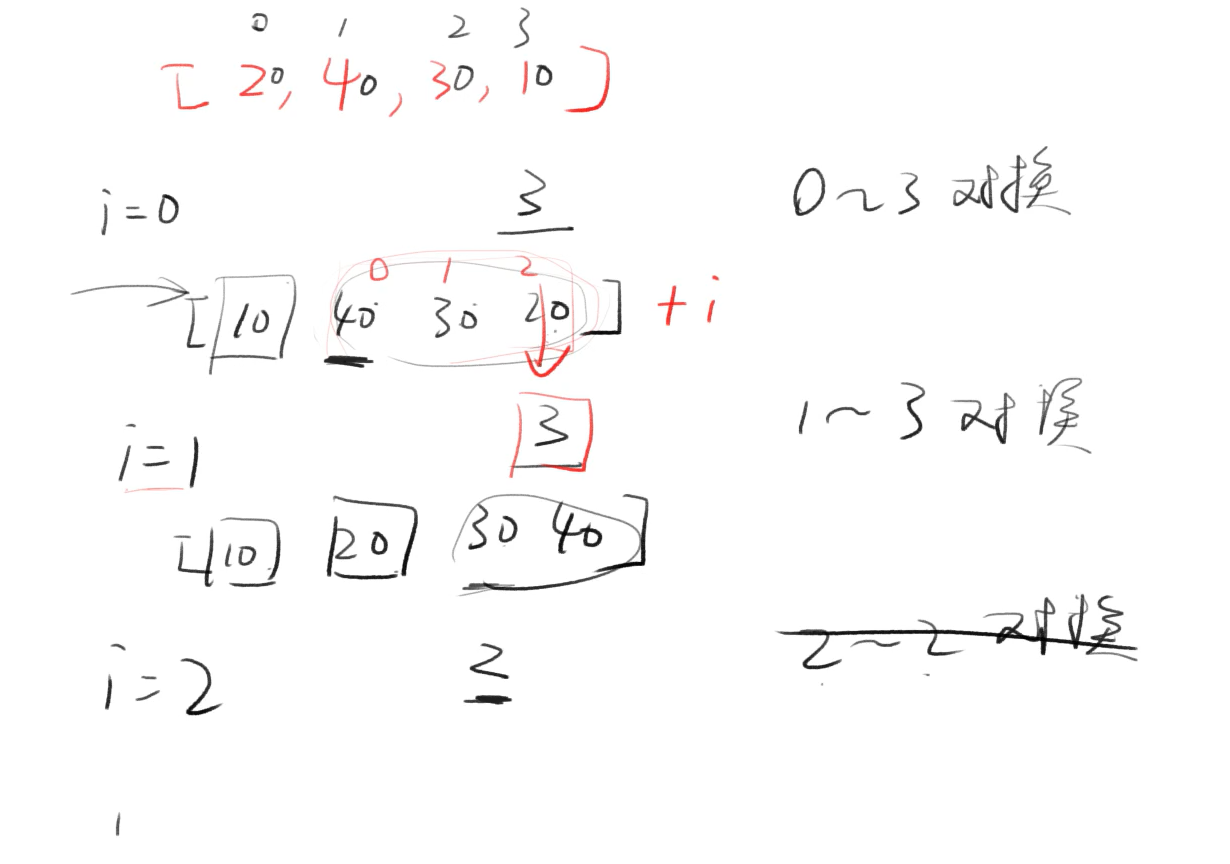 0 1 2 3
[ 20, 40, 30, 10 ]
i=0 3 0~3 对换
0 1 2
[ 10 40 30 20 ] + i
i=1 3 1~3 对换
[ 10 20 30 40 ]
i=2 2 2~2 对换